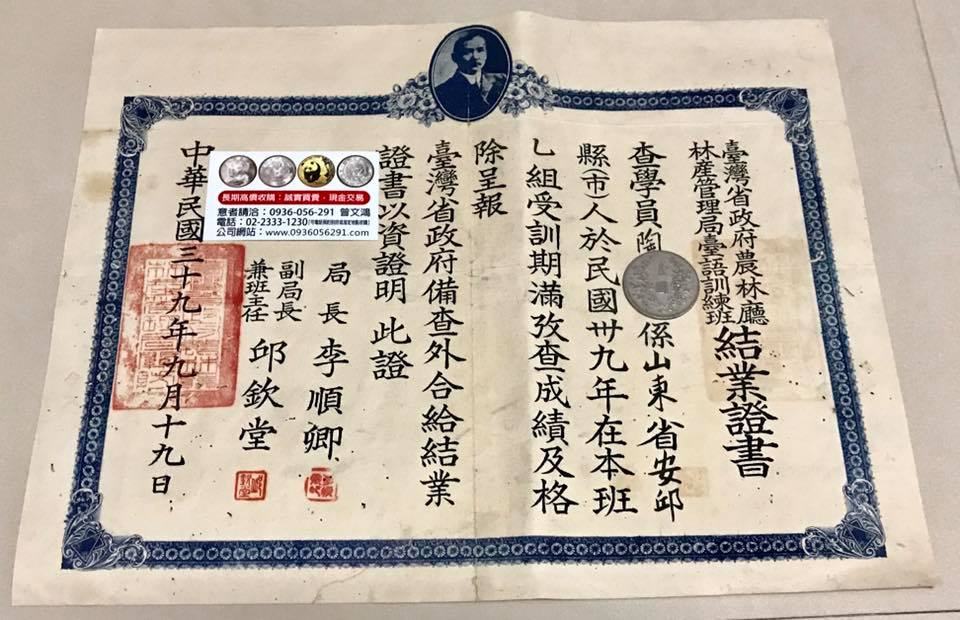 臺灣省政府農林廳
林產管理局臺語訓練班
結業證書
查學員陶
係山東省安邱
縣(市)人於民國卅九年在本班
乙組受訓期滿攷查成績及格
除呈報
臺灣省政府備查外合給結業
證書以資證明此證
局長李順卿
副局長
兼班主任
邱欽堂
中華民國三十九年九月十九日
長期高價收購:誠實買賣・現金交易
意者請洽:0936-056-291 曾文鴻
電話:02-2333-1230
公司網站:www.0936056291.com